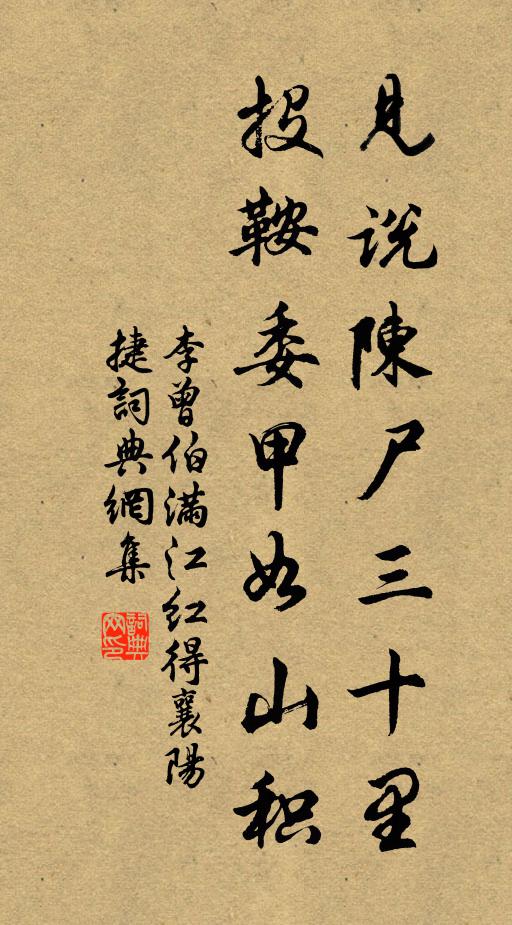 見說陳尸三十里
投鞍委甲如山积
李曾伯滿江红得襄陽
捷詞典網集
詞典網印